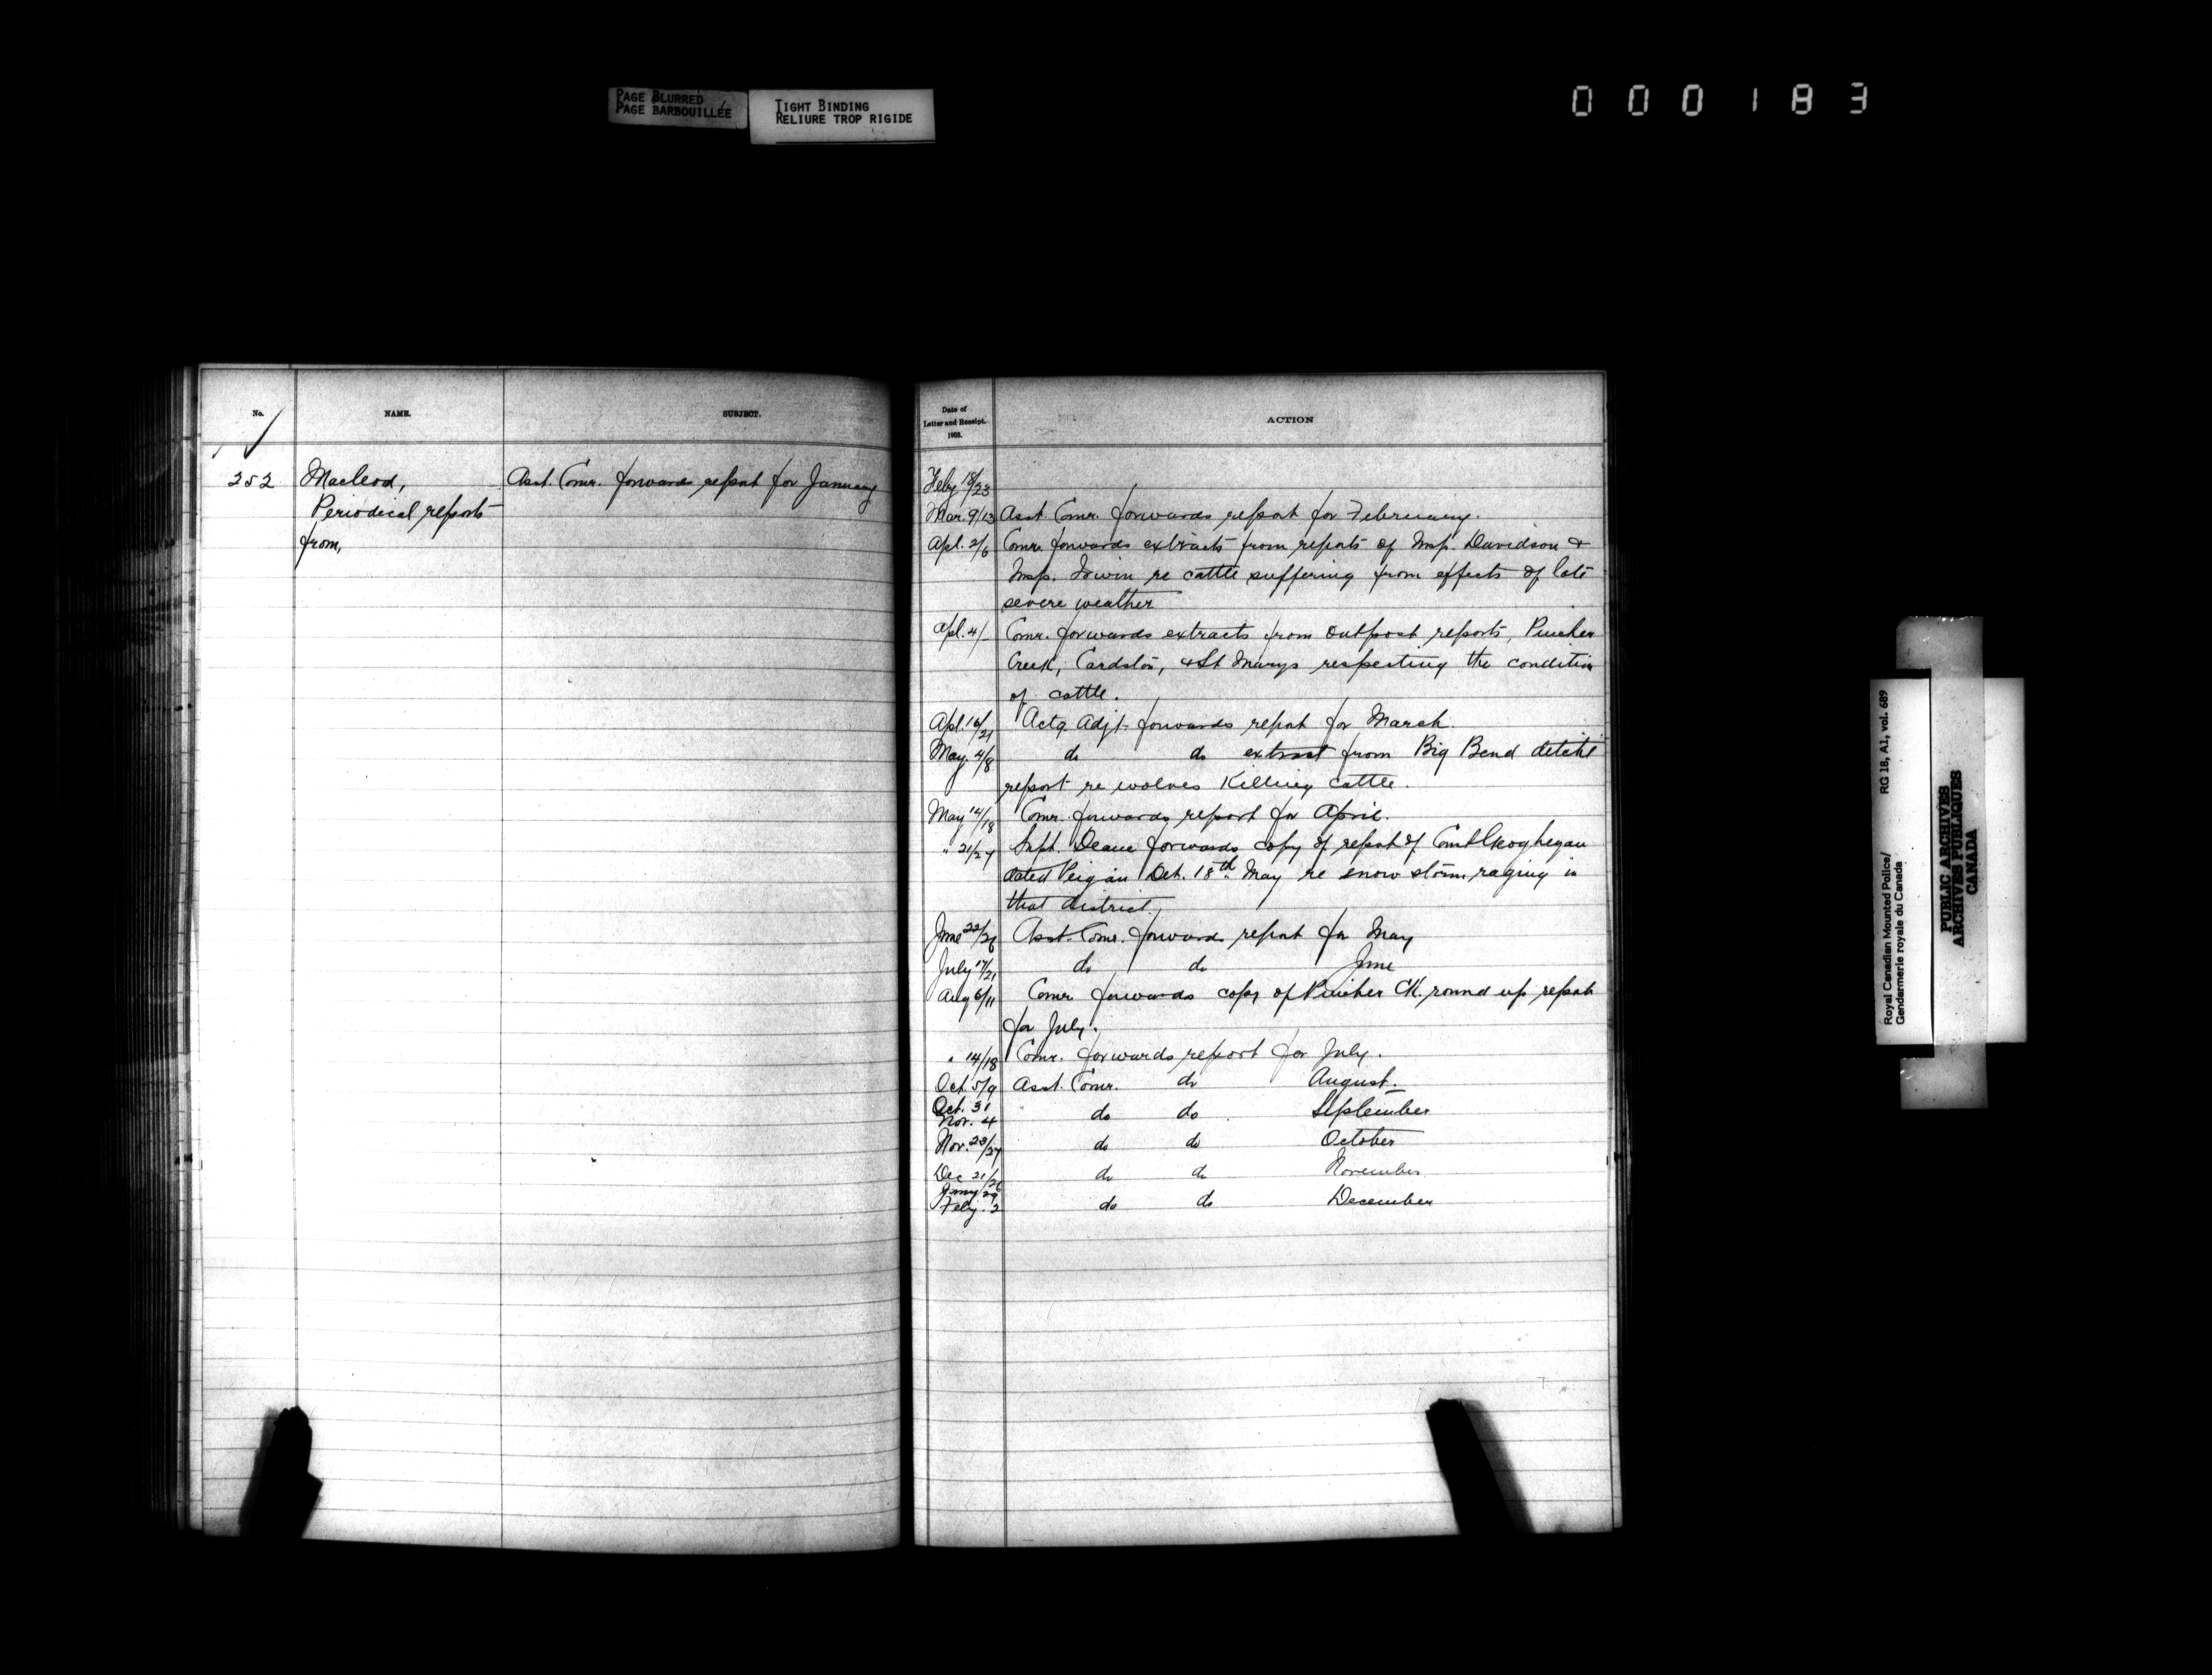 PAGE BLURRED
PAGE BARBOUILLÉE
TIGHT BINDING
RELIURE TROP RIGIDE
0 0 0 1 8 3
No.
NAME.
SUBJECT.
252
Macleod,
Periodical reports
from,
Asst. Comr. forwards report for January
Date of
Letter and Receipt.
1903.
ACTION
Feby 18/23
Mar. 9/13 Asst. Comr. forwards report for February.
Apl. 2/6 Comr. forwards extracts from reports of Insp. Davidson &
Insp. Irwin re cattle suffering from effects of late
severe weather
Apl. 4/- Comr. forwards extracts from outpost reports, Pincher
Creek, Cardston, & St Marys respecting the condition
of cattle.
Apl. 16/21 Actg. Adjt. forwards report for March.
May. 4/8 do do extract from Big Bend detcht
report re wolves Killing cattle.
May 14/18 Comr. forwards report for April.
" 21/27 Supt. Deane forwards copy of report of Const Geoghegan
dated Peigan Det. 18th May re snow storm raging in
that district,
June 22/26 Asst. Comr. forwards report for May
July 17/21 do do June
Aug 6/11 Comr forwards copy of Pincher Ck. round up report
for July.
" 14/18 Comr. forwards report for July.
Oct. 5/9 Asst. Comr. do August.
Oct. 31
Nov. 4 do do September
Nov. 23/27 do do October
Dec 21/26 do do November
Jany 29
Feby. 2 do do December
Royal Canadian Mounted Police/ RG 18, A1, vol. 689
Gendarmerie royale du Canada
PUBLIC ARCHIVES
ARCHIVES PUBLIQUES
CANADA